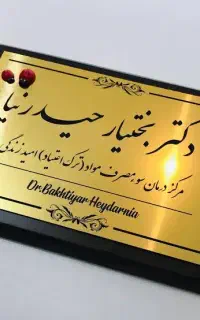 دکتر بختیار حیدرنیا
مرکز درمان سوء مصرف مواد (ترک اعتیاد) امید زندگی
Dr.Bakhtiyar Heydarnia